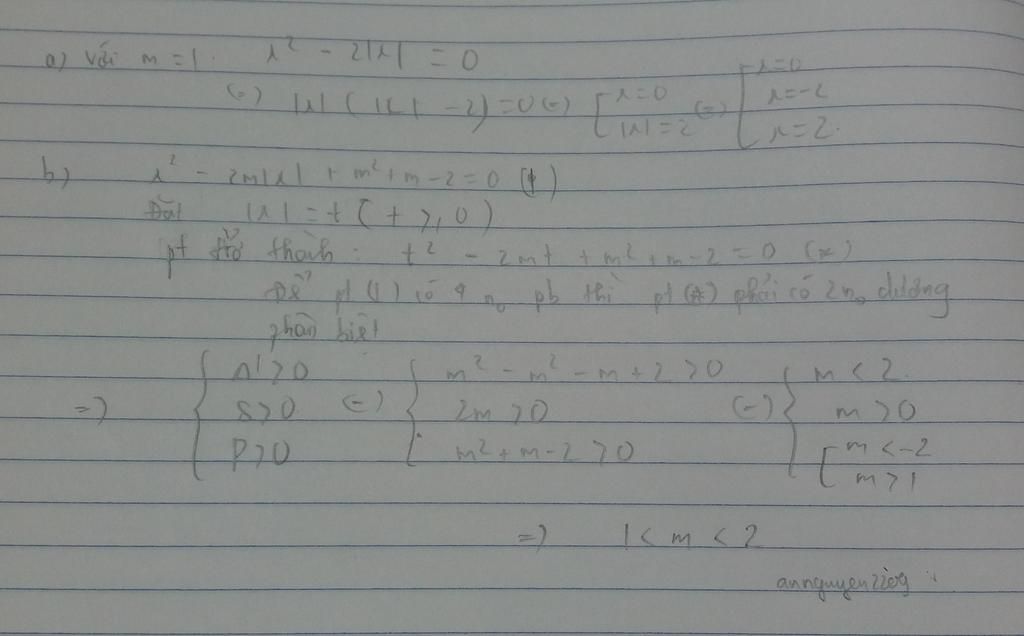 a) Với m = 1. x² - 2|x| = 0
(=) |x| ( |x| - 2) = 0 (=) [ x = 0 |x| = 2 (=) [ x = 0 x = -2 x = 2.
b) x² - 2m|x| + m² + m - 2 = 0 (1)
Đặt |x| = t ( t ≥ 0 )
pt trở thành : t² - 2mt + m² + m - 2 = 0 (*)
Để pt (1) có 4 n₀ pb thì pt (*) phải có 2 n₀ dương
phân biệt
=) { Δ' > 0 S > 0 P > 0 (=) { m² - m² - m + 2 > 0 2m > 0 m² + m - 2 > 0 (=) { m < 2. m > 0 [ m < -2 m > 1
=) 1 < m < 2